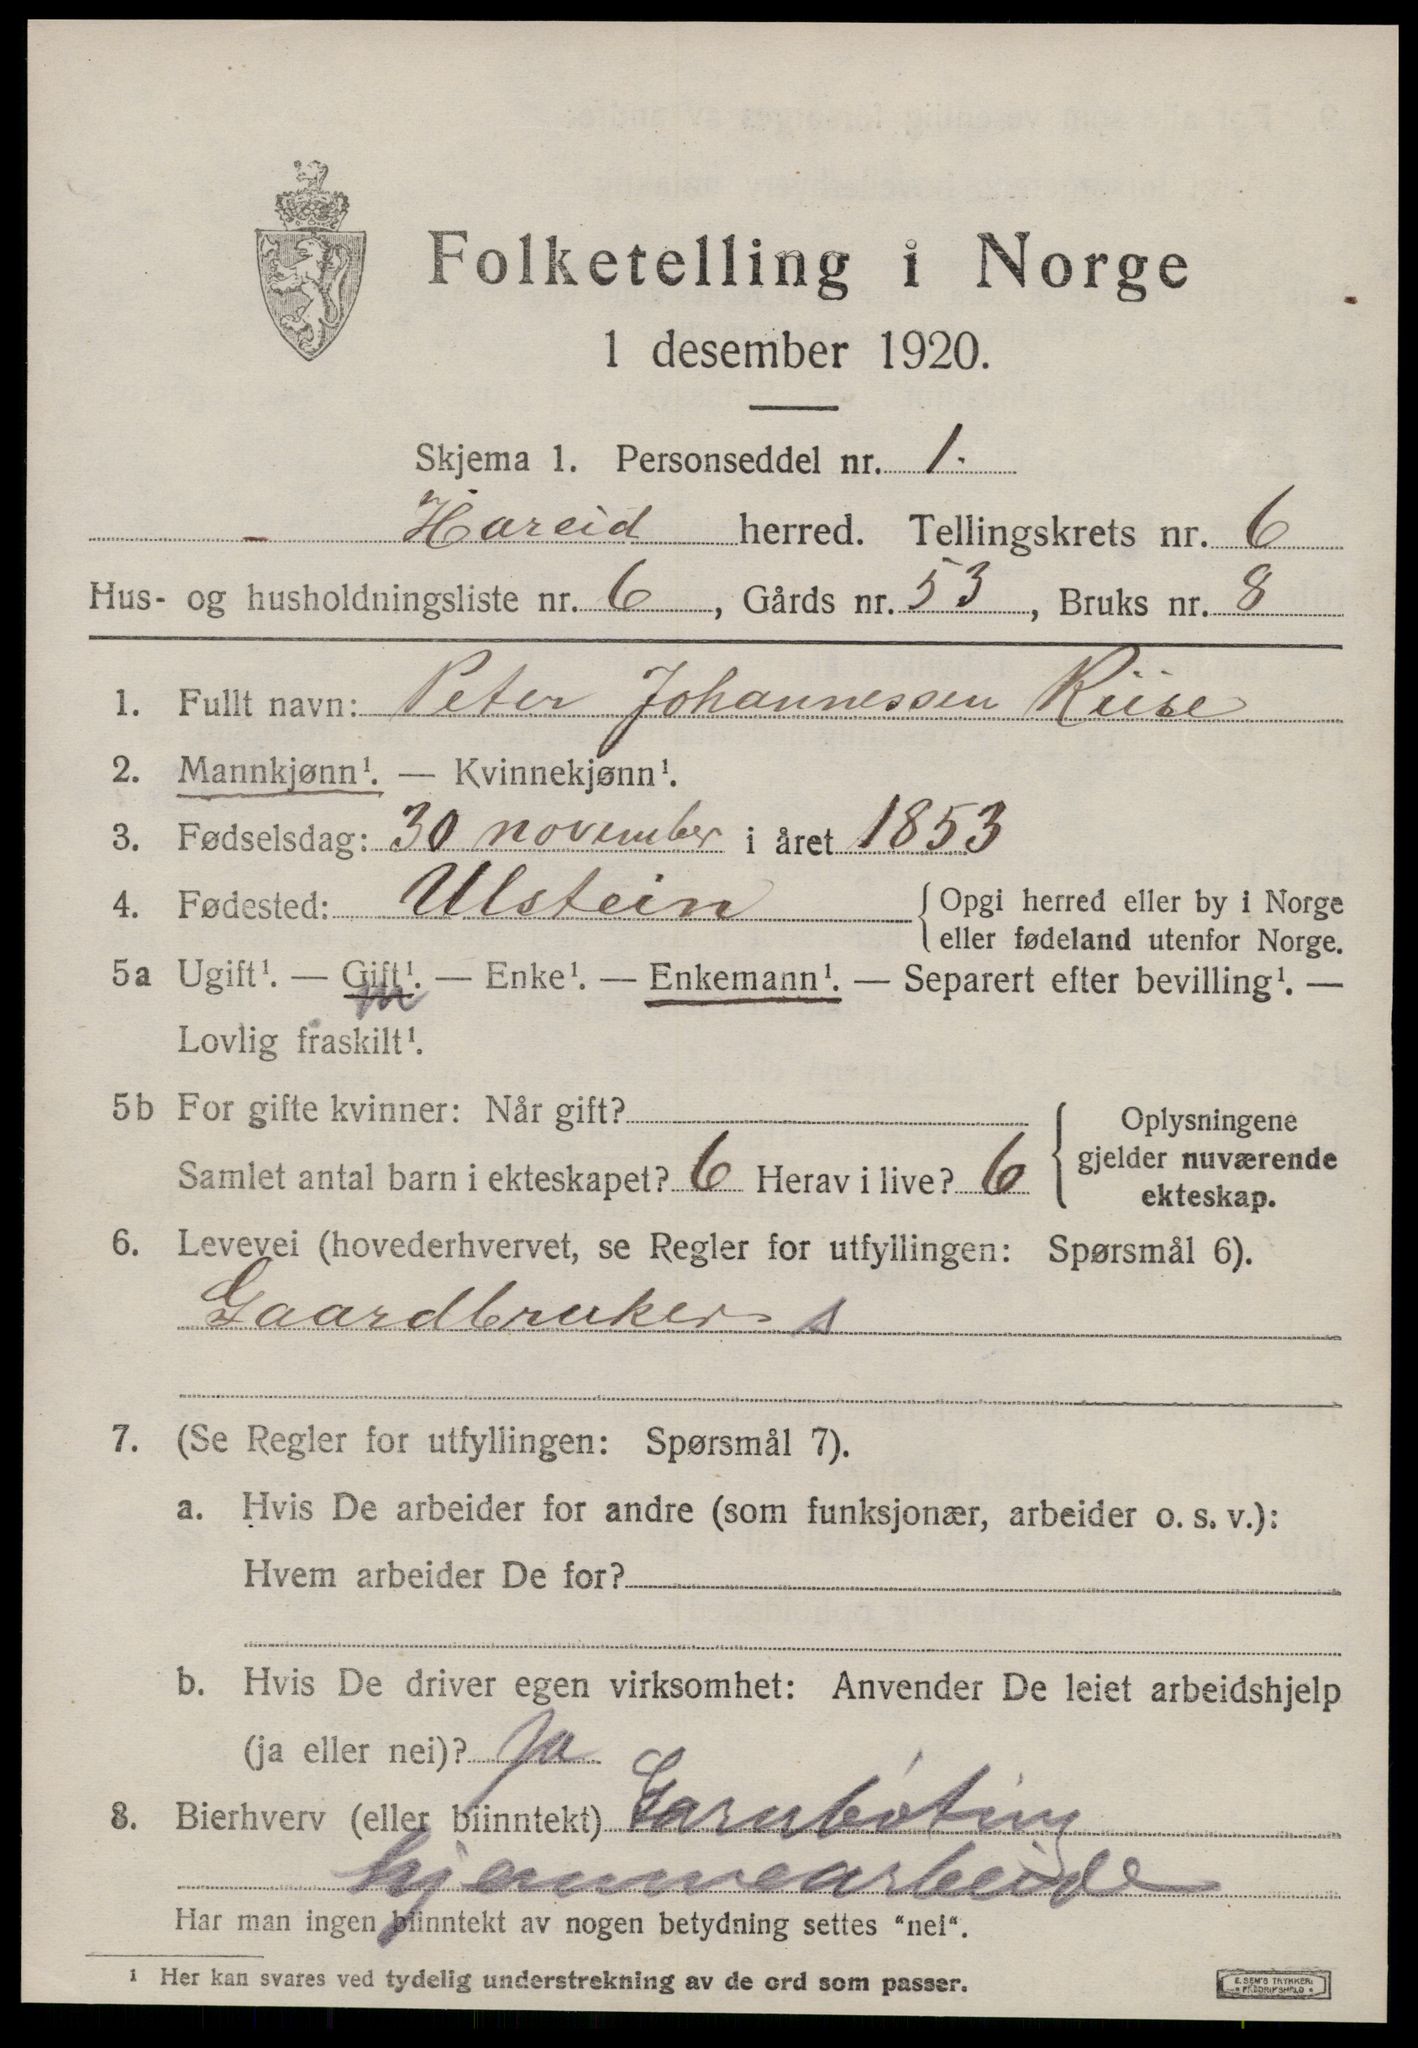 Folketelling i Norge
1 desember 1920.
Skjema 1. Personseddel nr. 1.
Hareid herred. Tellingskrets nr. 6
Hus- og husholdningsliste nr. 6, Gårds nr. 53, Bruks nr. 8
1. Fullt navn: Peter Johannessen Riise
2. Mannkjønn¹. — Kvinnekjønn¹.
3. Fødselsdag: 30 november i året 1853
4. Fødested: Ulstein { Opgi herred eller by i Norge
eller fødeland utenfor Norge.
5a Ugift¹. — Gift¹. — Enke¹. — Enkemann¹. — Separert efter bevilling¹. —
m
Lovlig fraskilt¹.
5b For gifte kvinner: Når gift?
Samlet antal barn i ekteskapet? 6 Herav i live? 6
{ Oplysningene
gjelder nuværende
ekteskap.
6. Levevei (hovederhvervet, se Regler for utfyllingen: Spørsmål 6).
Gaardbruker s
7. (Se Regler for utfyllingen: Spørsmål 7).
a. Hvis De arbeider for andre (som funksjonær, arbeider o. s. v.):
Hvem arbeider De for?
b. Hvis De driver egen virksomhet: Anvender De leiet arbeidshjelp
(ja eller nei)? Ja
8. Bierhverv (eller biinntekt) Garnbøting
hjemmearbeide
Har man ingen biinntekt av nogen betydning settes "nei".
¹ Her kan svares ved tydelig understrekning av de ord som passer.
E. SEM'S TRYKKERI
* FREDRIKSHALD *